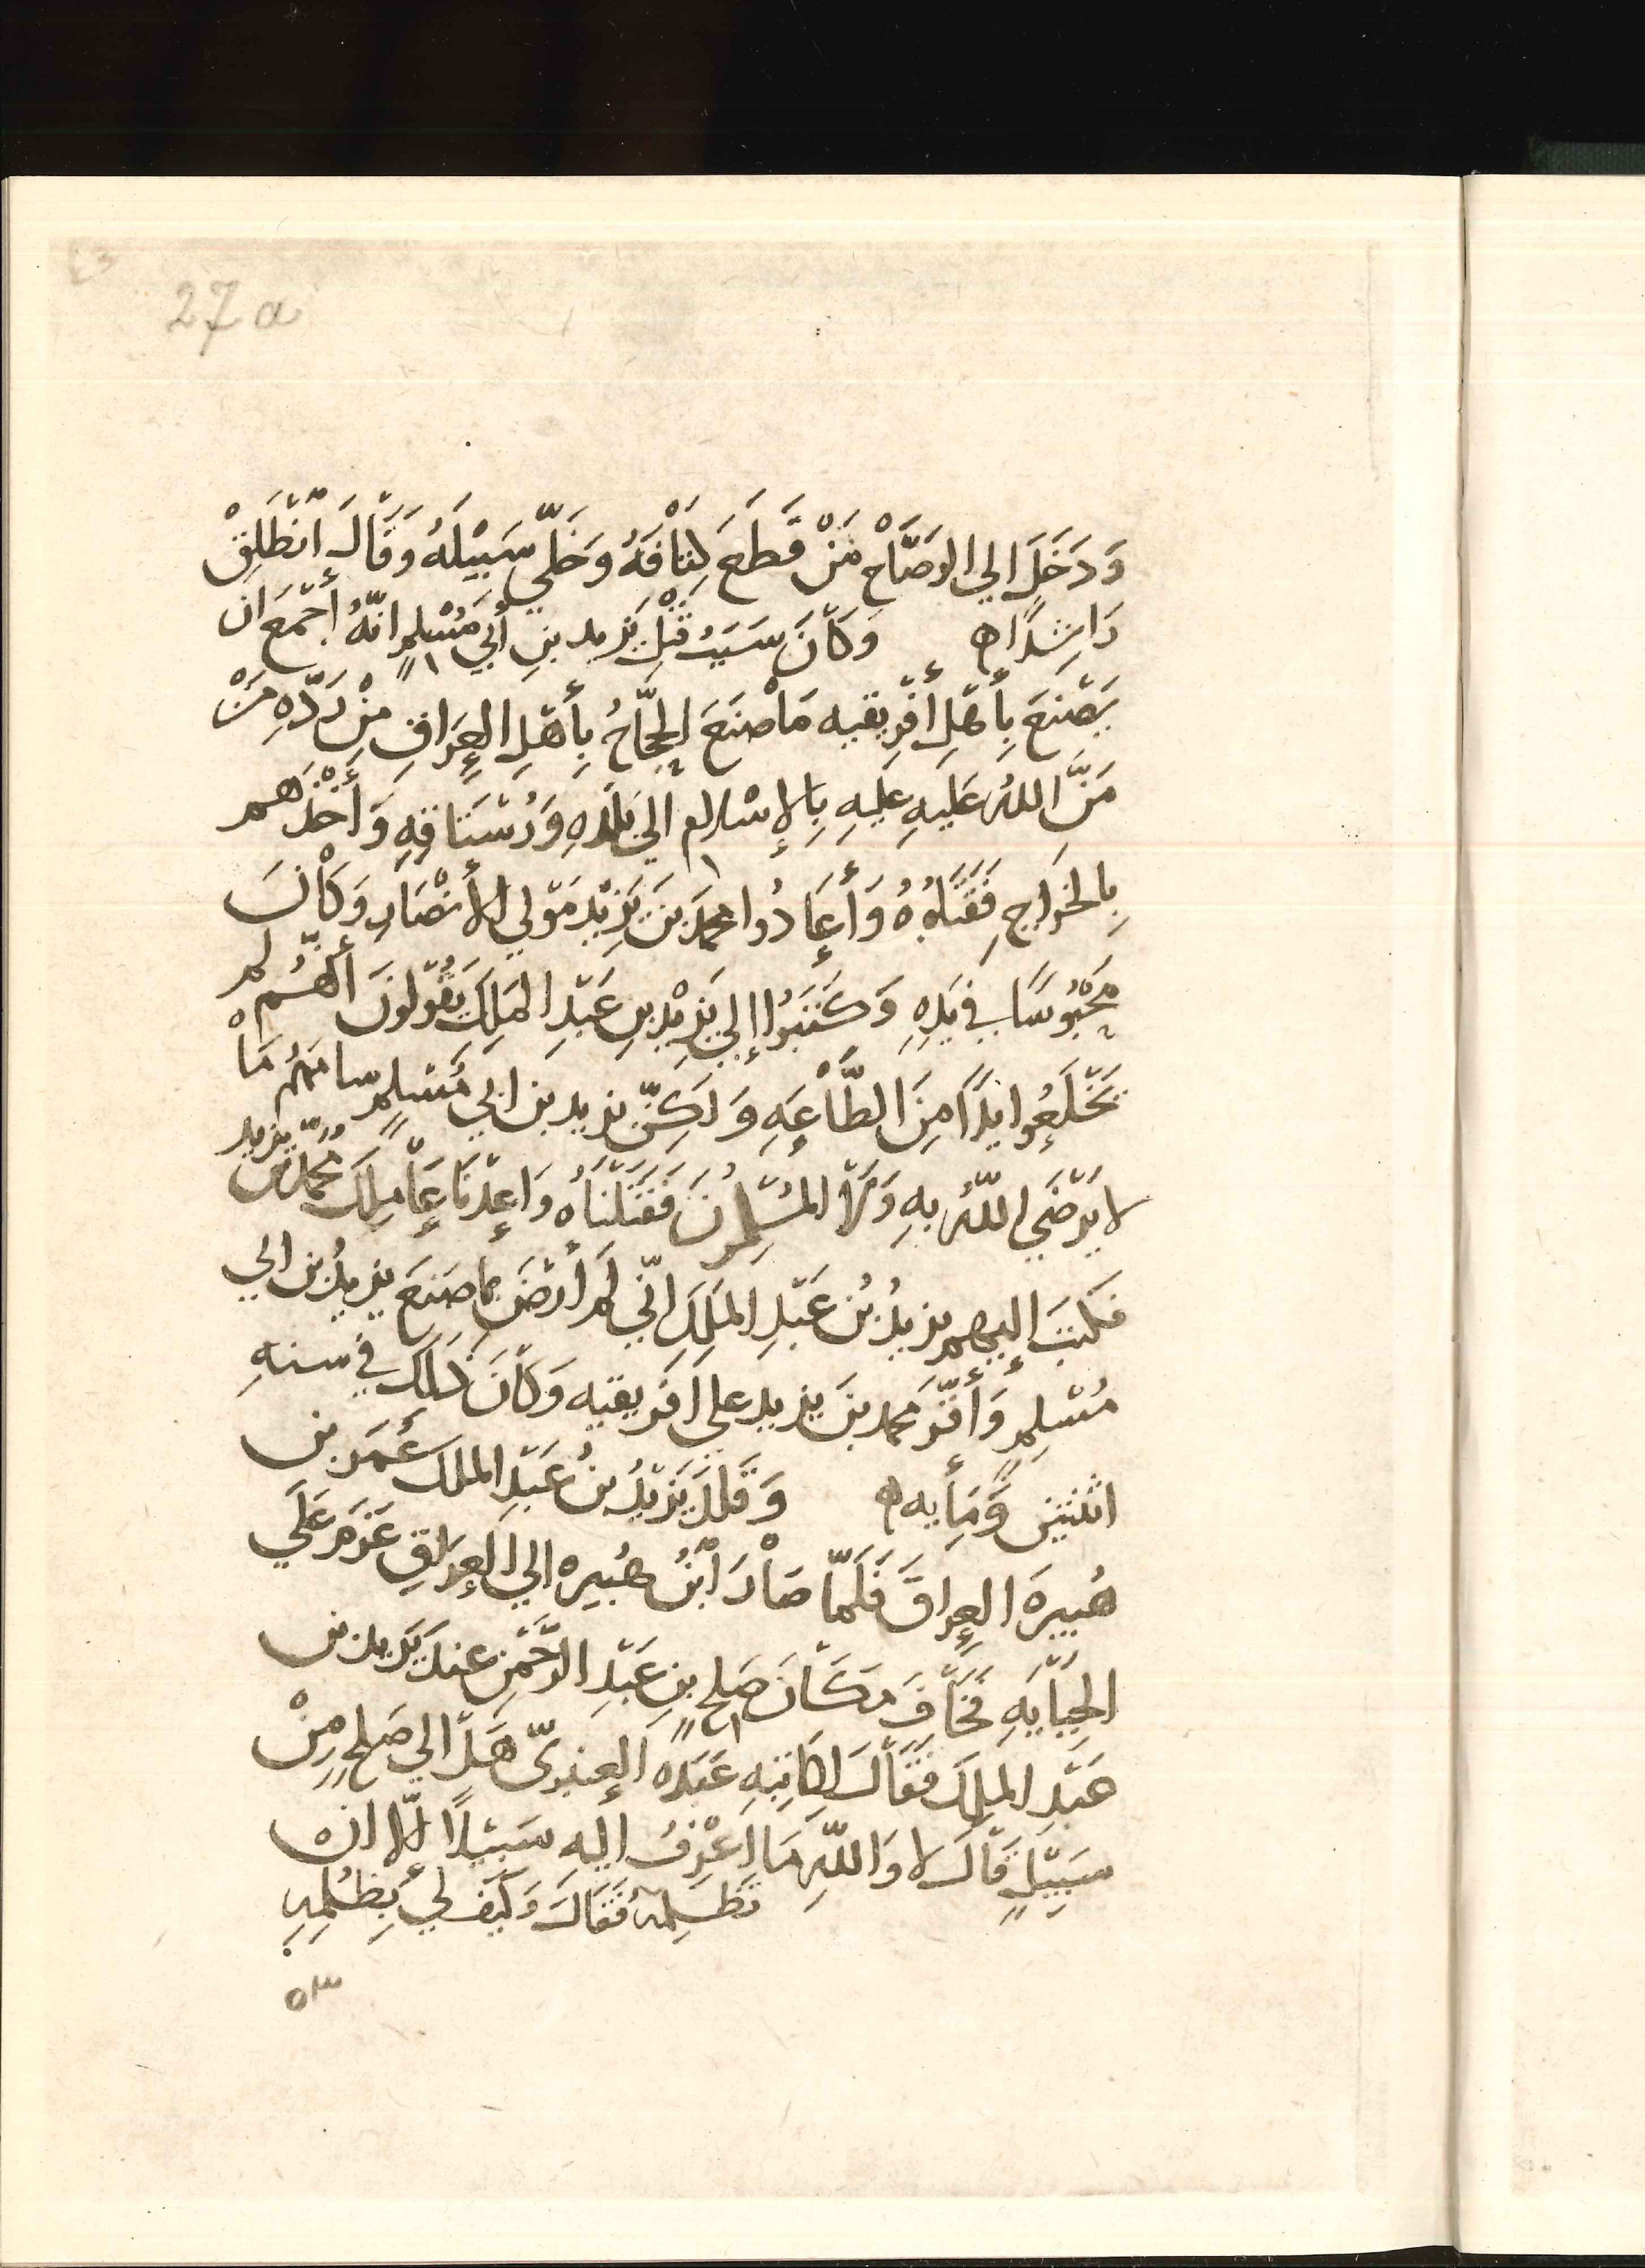 27a
وَدَخَلَ الي الوَضَّاْحِ مَنْ قَطَعَ كِتَاْفَهُ وَخَلّي سَبِيْلَهُ وَقَالَ اِنْطَلِقْ
رَاشِدًا ه وَكَاْنَ سَبَبُ قَتْلِ يَزيد بنِ أبي مُسْلِمٍ انّهُ أجْمَعَ ان
يَصْنَعَ بِأَهْلِ أفْرِيقيه مَاْ صَنَعَ الحَجَّاجُ بِأَهْلِ العِرَاقِ مِنْ رَدِّهِ مَنْ
مَنَّ اللهُ عَلَيهِ عليهِ بِالإسْلامِ الي بَلَدِهِ وَرُسْتَاقِهِ وَأَخْذِهم
بِالخَراجِ فَقَتَلُوْهُ وَأَعَادُوا محمدَ بنَ يَزِيْدَ مَوْلي الأَنْصَارِ وَكَاْنَ
مَحْبُوسًا في يَدِهِ وَكَتَبَوُا إلي يَزِيْدِ بنِ عَبْدِ المَلِكِ يَقُوْلونَ أَنَّهُم لم
يَخْلَعُوا يَدًا مِنَ الطَّاْعَهِ وَلَكِنّ يزيد بنَ ابي مُسْلِمٍ سامَهُم مَاْ
لا يَرْضَي اللّهُ بهِ وَلا المُسْلِمُونَ فَقَتَلْنَاْهُ وَاعِدْنَا عَاْمِلَكَ مُحَمّدَ بن يزيد
فكتبَ إليهم يزيدُ بنُ عَبْدِ المَلِكِ انّي لَم أَرْضَ بِما صَنعَ يزيدُ بن ابي
مُسْلِمٍ وَأَقَرّ محمد بنَ يزيد علي افريقيه وَكَاْنَ ذَلِكَ في سنهِ
اثنتين وَّمَأيه ه وَقَلّدَ يَزيْدُ بنُ عَبْدِ الملك عُمَرَ بن
هُبيرهَ العِراقَ فَلَمّا صَاْرَ ابْنُ هُبيره الي العِرَاقِ عَزمَ عَلَي
الجِبَاْيَهِ فَخَاْفَ مَكَاْنَ صَلح بنِ عَبْدِ الرَّحْمَنِ عندَ يَزيد بن
عَبْدِ الملِكِ فَقَاْلَ لِكَاتِبِهِ عَبَدهَ العنبريّ هَلْ الي صَلحٍ مِنْ
سَبِيْلٍ قَاْلَ لا وَاللّهِ مَا اعْرِفُ اليهِ سَبِيْلًا إلّا ان
تَظلِمهُ فقَالَ وَكَيْفَ لِي بِظُلْمِهِ
٥٣